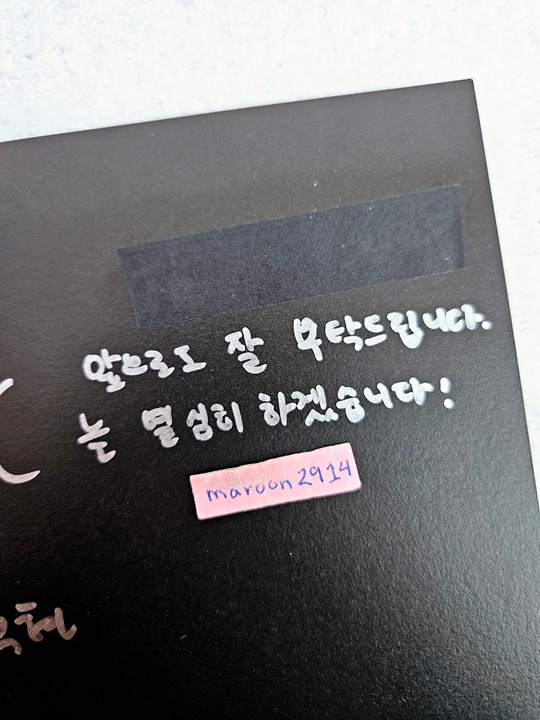 앞으로도 잘 부탁드립니다.
는 열심히 하겠습니다!
maroon2914